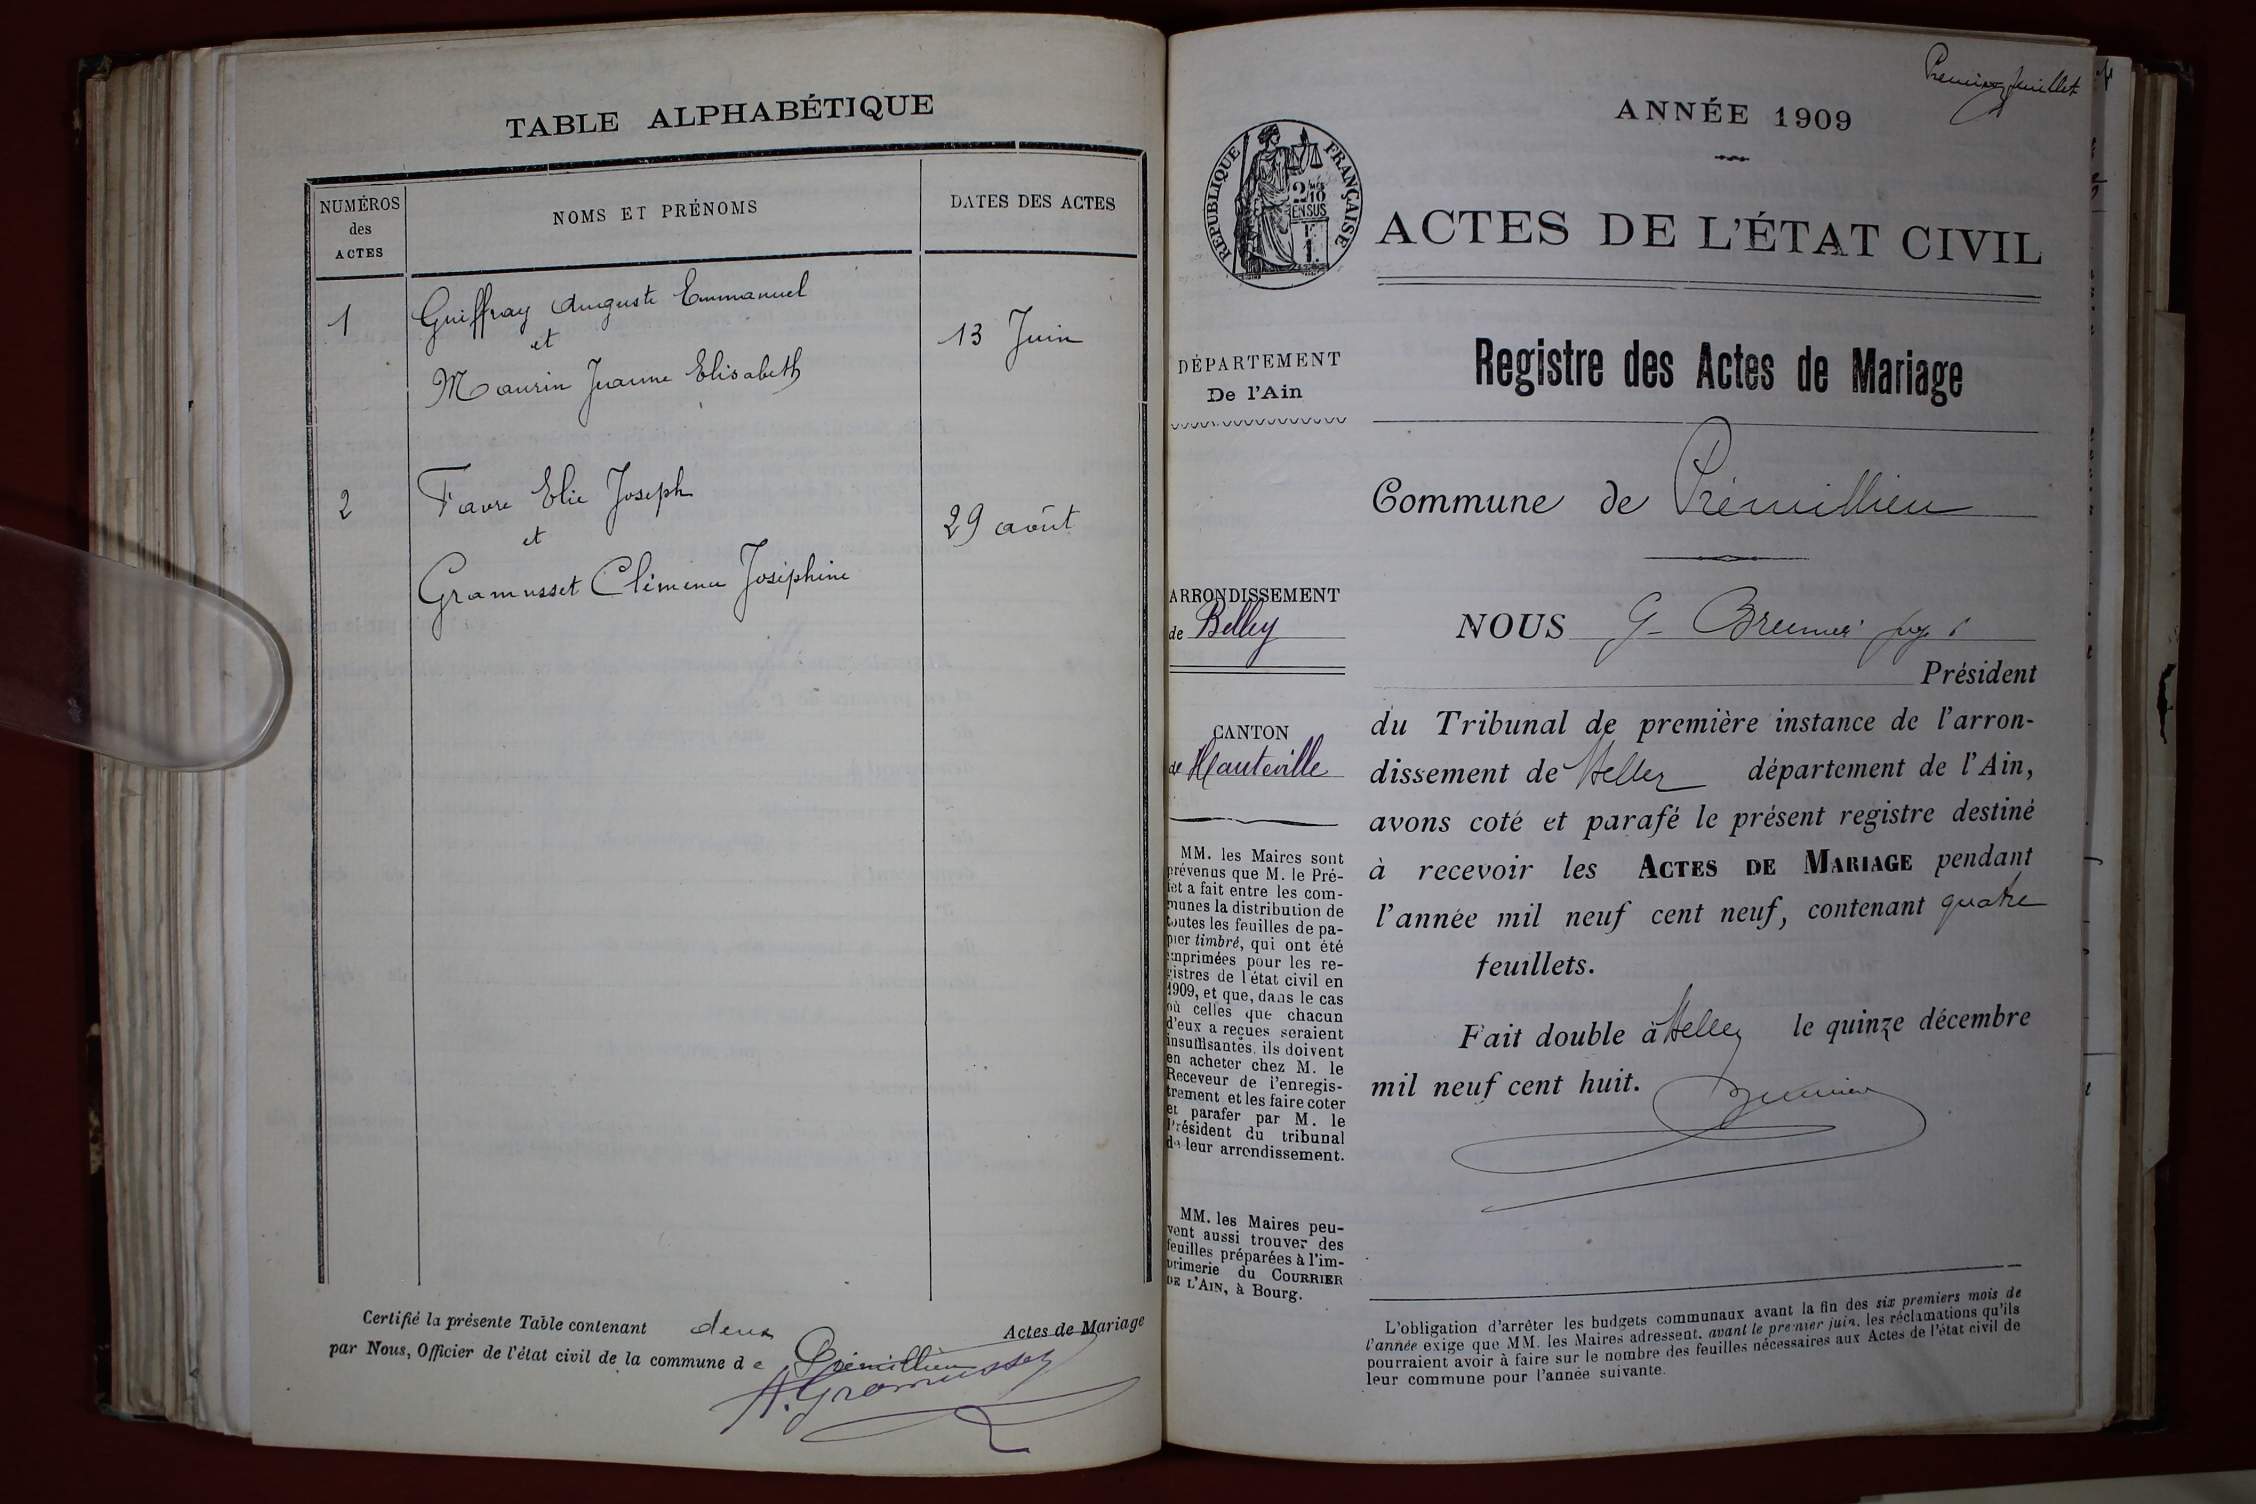 TABLE ALPHABÉTIQUE
NUMÉROS
des
ACTES
NOMS ET PRÉNOMS
DATES DES ACTES
1
Guiffray Auguste Emmanuel
et
Maurin Jeanne Elisabeth
13 Juin
2
Favre Elie Joseph
et
Gramusset Clémence Joséphine
29 août
Certifié la présente Table contenant deux Actes de Mariage
par Nous, Officier de l'état civil de la commune de Prémillieu
A. Gramusset
Premier feuillet
ANNÉE 1909
RÉPUBLIQUE FRANÇAISE
ACTES DE L'ÉTAT CIVIL
DÉPARTEMENT
De l'Ain
ARRONDISSEMENT
de Belley
CANTON
de Hauteville
MM. les Maires sont
prévenus que M. le Pré-
fet a fait entre les com-
munes la distribution de
toutes les feuilles de pa-
pier timbré, qui ont été
imprimées pour les re-
gistres de l'état civil en
1909, et que, dans le cas
où celles que chacun
d'eux a reçues seraient
insuffisantes, ils doivent
en acheter chez M. le
Receveur de l'enregis-
trement et les faire coter
et parafer par M. le
Président du tribunal
de leur arrondissement.
MM. les Maires peu-
vent aussi trouver des
feuilles préparées à l'im-
primerie du COURRIER
DE L'AIN, à Bourg.
Registre des Actes de Mariage
Commune de Prémillieu
NOUS G. Brunier
Président
du Tribunal de première instance de l'arron-
dissement de Belley département de l'Ain,
avons coté et parafé le présent registre destiné
à recevoir les ACTES DE MARIAGE pendant
l'année mil neuf cent neuf, contenant quatre
feuillets.
Fait double à Belley le quinze décembre
mil neuf cent huit.
Brunier
L'obligation d'arrêter les budgets communaux avant la fin des six premiers mois de
l'année exige que MM. les Maires adressent, avant le premier juin, les réclamations qu'ils
pourraient avoir à faire sur le nombre des feuilles nécessaires aux Actes de l'état civil de
leur commune pour l'année suivante.